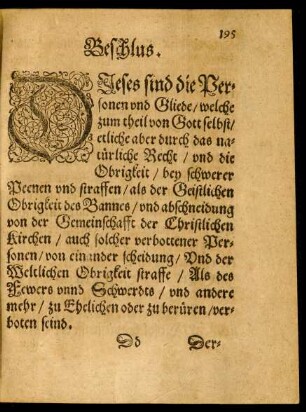 195
Beschlus.
DIeses sind die Per-
sonen vnd Gliede/ welche
zum theil von Gott selbst/
etliche aber durch das na-
türliche Recht / vnd die
Obrigkeit / bey schwerer
Peenen vnd straffen/ als der Geistlichen
Obrigkeit des Bannes/ vnd abschneidung
von der Gemeinschafft der Christlichen
Kirchen / auch solcher verbottener Per-
sonen/ von einander scheidung/ Vnd der
Weltlichen Obrigkeit straffe / Als des
Fewers vnnd Schwerdts / vnd andere
mehr/ zu Ehelichen oder zu berüren/ ver-
boten seind.
Dd Der-